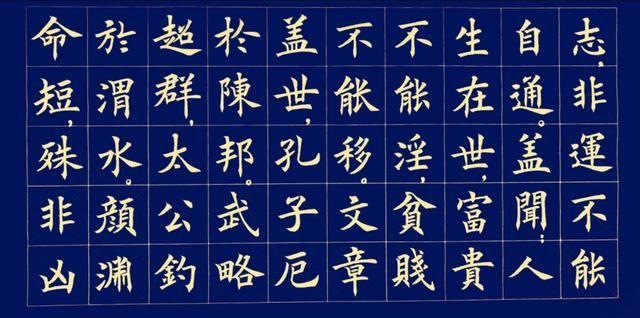 志，非運不能
自通。蓋聞：人
生在世，富貴
不能淫，貧賤
不能移。文章
蓋世，孔子厄
於陳邦。武略
超群，太公釣
於渭水。顔淵
命短，殊非凶